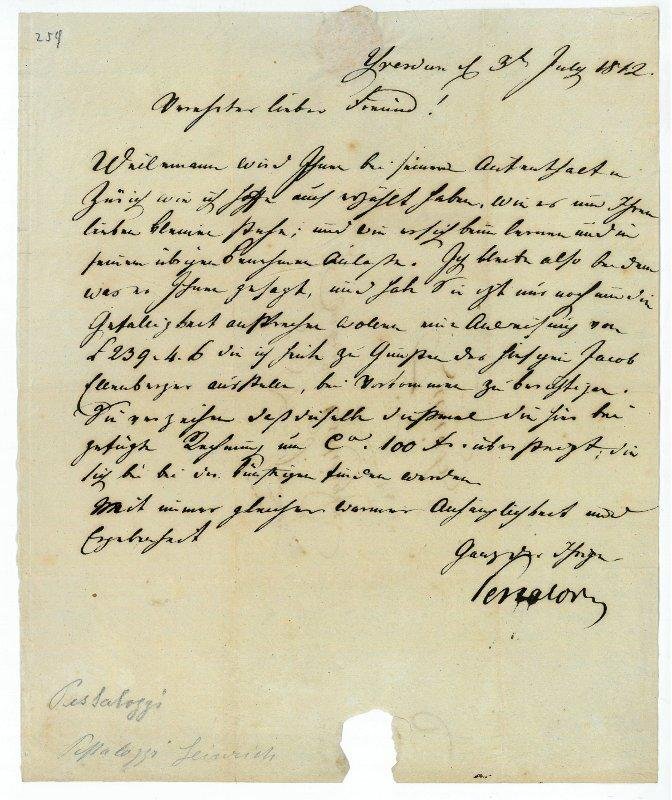 259
Yverdun d 3t July 1812.
Verehrter lieber Freund!
Weilenmann wird Ihnen bei seinem Aufenthalt in
Zürich wie ich hoffe auch erzählt haben, wie es um Ihren
lieben Clemen stehe; und wie er sich beim lernen und in
seinem übrigen Benehmen anlaße. Ich bleibe also bei dem
was er Ihnen gesagt, und habe Sie izt nur noch um die
Gefälligkeit ansprechen wollen eine Anweisung von
£ 239. 4. 6 die ich heute zu Gunsten des Herrn Jacob
Ellenberger ausstelle, bei Vorkommen zu berichtigen.
Sie verzeihen daß dieselbe dießmal die hier bei
gefügte Rechnung um Ca. 100 Fr. übersteigt, die
sich bei der künftigen finden werden
Mit immer gleicher warmer Anhänglichkeit und
Ergebenheit
Ganz der Ihrige
Pestalozzi
Pestalozzi
Pestalozzi Heinrich